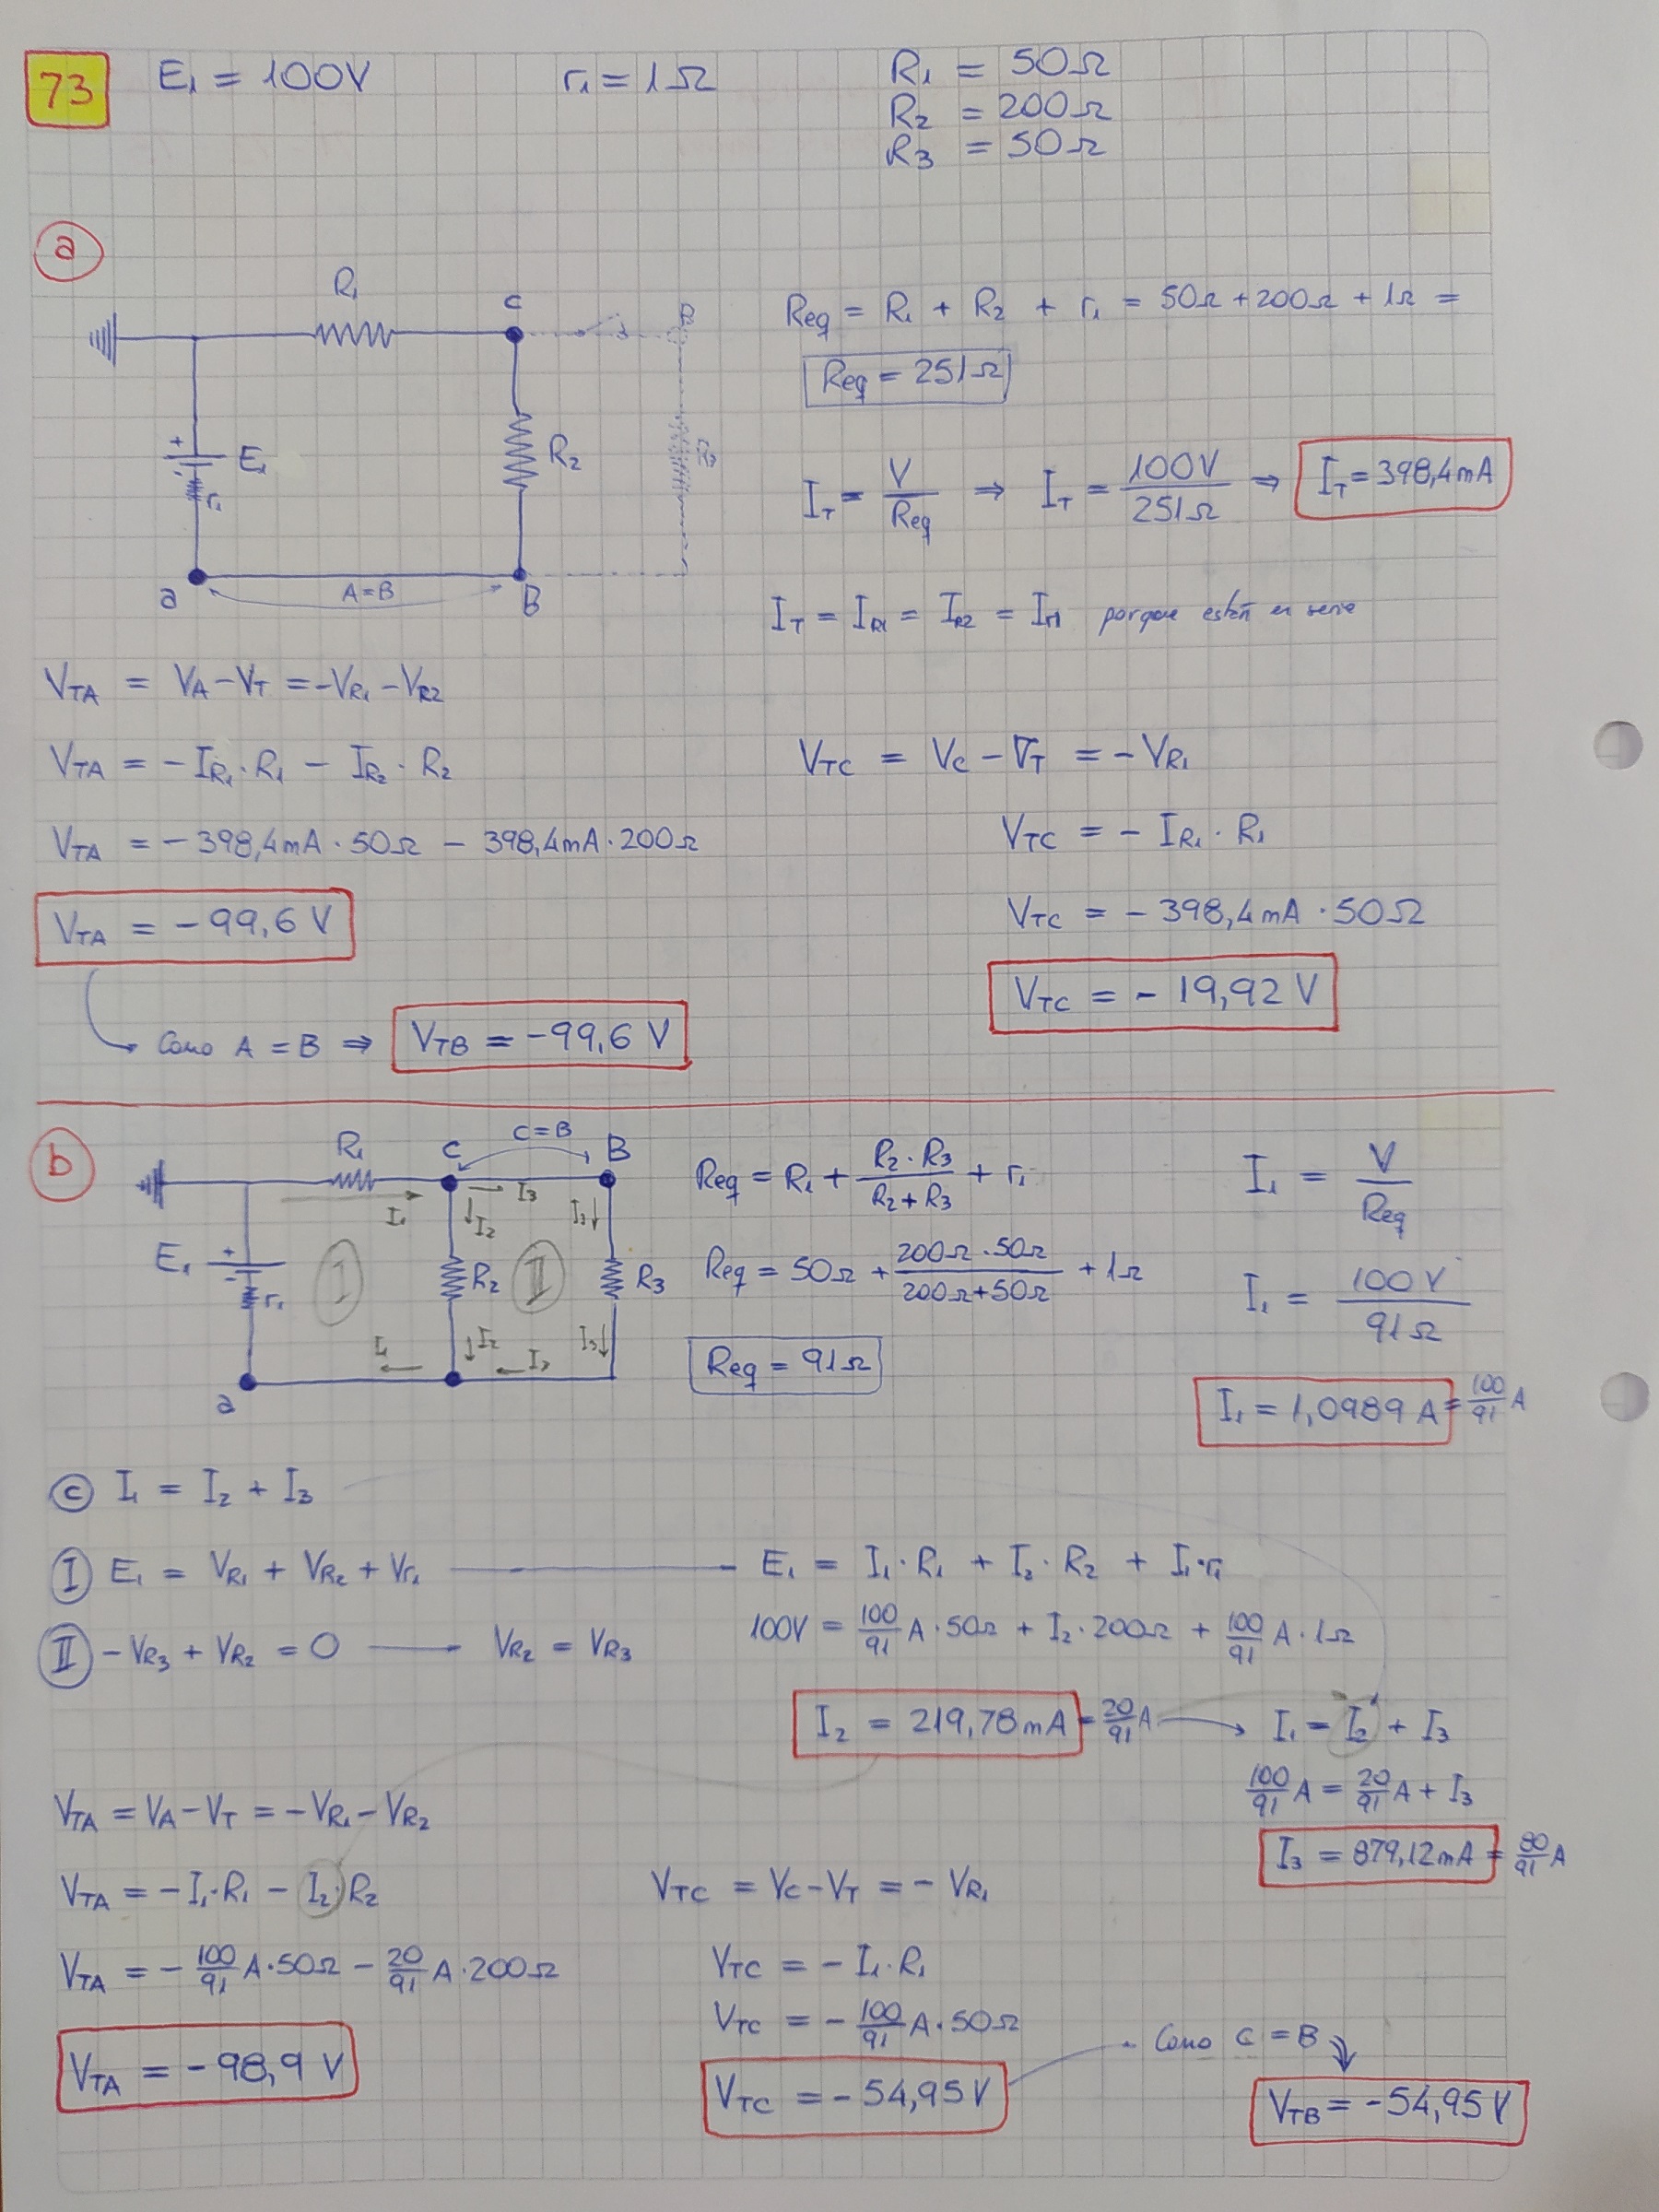 73 E₁ = 100V r₁ = 1Ω R₁ = 50Ω
R₂ = 200Ω
R₃ = 50Ω
a
R₁ C B
E₁ + - r₁ R₂ R₃
a A=B B
Req = R₁ + R₂ + r₁ = 50Ω + 200Ω + 1Ω =
Req = 251Ω
I_T = V/Req ⇒ I_T = 100V/251Ω ⇒ I_T = 398,4mA
I_T = I_R1 = I_R2 = I_r1 porque están en serie
V_TA = V_A - V_T = -V_R1 - V_R2
V_TA = - I_R1 · R₁ - I_R2 · R₂
V_TA = - 398,4mA · 50Ω - 398,4mA · 200Ω
V_TA = - 99,6 V
Como A = B ⇒ V_TB = -99,6 V
V_TC = V_C - V_T = - V_R1
V_TC = - I_R1 · R₁
V_TC = - 398,4mA · 50Ω
V_TC = - 19,92 V
b
R₁ C C=B B
I₁ I₃ I₂ I₃
E₁ + - r₁ I R₂ II R₃
I₁ I₂ I₃ I₃
a
Req = R₁ + R₂·R₃/(R₂+R₃) + r₁
Req = 50Ω + 200Ω·50Ω/(200Ω+50Ω) + 1Ω
Req = 91Ω
I₁ = V/Req
I₁ = 100V/91Ω
I₁ = 1,0989 A = 100/91 A
C I₁ = I₂ + I₃
I E₁ = V_R1 + V_R2 + V_r1 E₁ = I₁·R₁ + I₂·R₂ + I₁·r₁
II - V_R3 + V_R2 = 0 → V_R2 = V_R3
100V = 100/91 A·50Ω + I₂·200Ω + 100/91 A·1Ω
I₂ = 219,78mA = 20/91 A → I₁ = I₂ + I₃
100/91 A = 20/91 A + I₃
I₃ = 879,12mA = 80/91 A
V_TA = V_A - V_T = - V_R1 - V_R2
V_TA = - I₁·R₁ - I₂·R₂
V_TA = - 100/91 A·50Ω - 20/91 A·200Ω
V_TA = - 98,9 V
V_TC = V_C - V_T = - V_R1
V_TC = - I₁·R₁
V_TC = - 100/91 A·50Ω
V_TC = - 54,95V
Como C = B
V_TB = -54,95 V